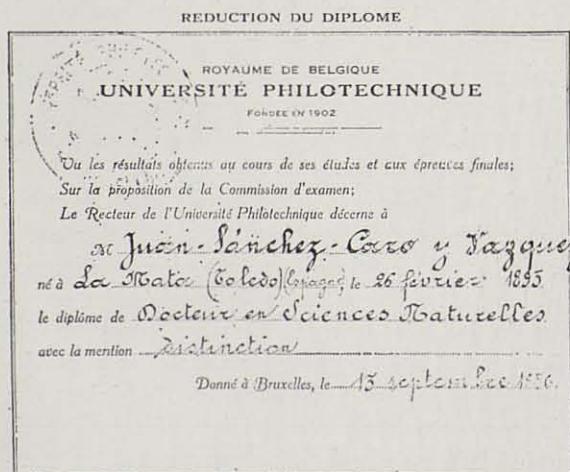 REDUCTION DU DIPLOME
ROYAUME DE BELGIQUE
UNIVERSITÉ PHILOTECHNIQUE
FONDÉE EN 1902
Vu les résultats obtenus au cours de ses études et aux épreuves finales;
Sur la proposition de la Commission d'examen;
Le Recteur de l'Université Philotechnique décerne à
M Juan-Sánchez-Caro y Vazquez
né à La Mata (Toledo) (Espagne) le 26 février 1893
le diplôme de Docteur en Sciences Naturelles
avec la mention Distinction
Donné à Bruxelles, le 13 septembre